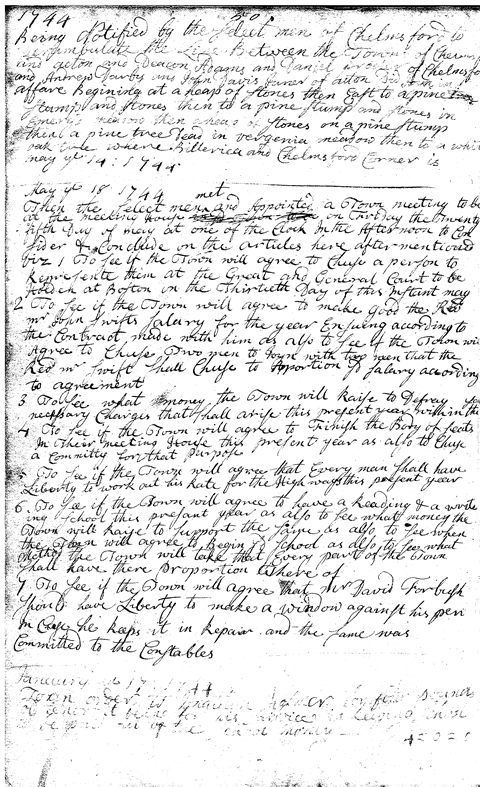 1744
Being Notified by the Select men of Chelmsford to
perambulate the Line Between the Towns of Chelmsford
and acton and Deacon Adams and Daniel of Chelmsford
and Andrew Darby and John Davis of acton
affare Begining at a heap of Stones then East to a pine
Stump and Stones then to a pine Stump and Stones in
meadow then a heap of Stones on a pine Stump
then a pine tree Dead in vergenia meadow then to a whit
oak tree where Billerica and Chelmsford Corner is
may ye 14: 1744
May ye 18 1744 met
Then the Select men and Appointed a Town meeting to be
at the meeting House on Fryday the Twenty
fifth Day of may at one of the Clock In the Afternoon to Con
sider & Conclude on the Articles here after mentioned
viz 1 To see if the Town will agree to Chuse a person to
Represente them at the Great and General Court to be
Holden at Boston in the Thirtieth Day of this Instent may
2 To see if the Town will agree to make good the Red
mr John Swifts Salary for the year Ensueng according to
the Contract made with him as also to see if the Town will
Agree to Chuse Two men to Joyn with two men that the
Red mr Swift shall Chuse to Apportion sd Salary according
to agreement
3 To see what money the Town will Raise to Defray
necssary Charges that shall arise this present year within the
4 To see if the Town will agree to Finish the Body of seats
In Their meeting House this present year as also to Chuse
a Committy for that purpose
5 To see if the Town will agree that Every man shall have
Liberty to work out his Rate for the High ways this present year
6 To see if the Town will agree to have a Reading & a write
ing School this present year as also to see what money the
Town will Raise to support the same as also to see when
the Town will agree to Begin sd School as also to see what
method the Town will take that Every part of the Town
shall have there proportion thereof
7 To see if the Town will agree that mr David Forbush
should have Liberty to make a window against his pew
In Case he keeps it in Repair and the same was
Committed to the Constables
January ye 17 1744
Town order for four pounds
it being for his service in keeping
out of the money